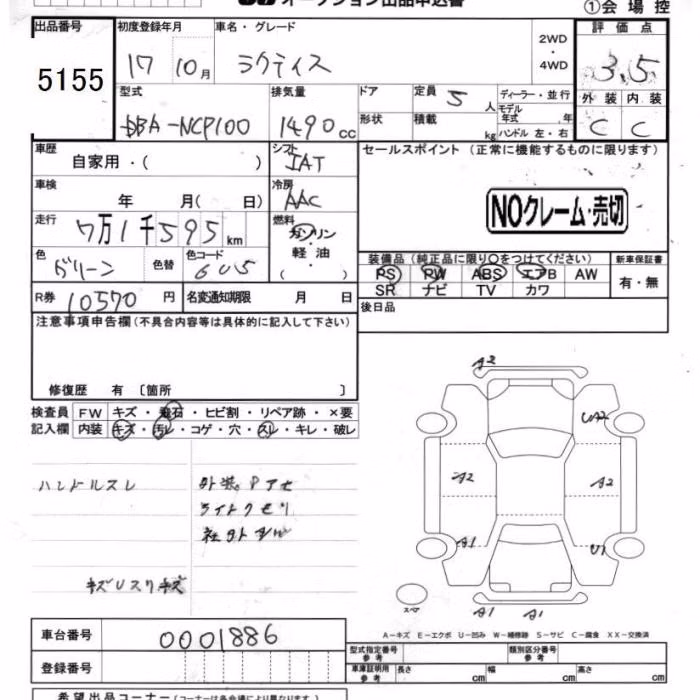 オークション出品申込書
①会場控
出品番号
5155
初度登録年月
17 10月
車名・グレード
ラクティス
2WD
・
4WD
評価点
3.5
外装 内装
C C
型式
DBA-NCP100
排気量
1490cc
ドア
形状
定員 5人
積載 kg
ディーラー・並行
モデル年式 年
ハンドル 左・右
車歴
自家用・( )
シフト
IAT
セールスポイント (正常に機能するものに限ります)
車検
年 月( 日)
冷房
AAC
NOクレーム・売切
走行
7万1千595km
燃料
ガソリン
・
軽油
( )
色
グリーン
色替
色コード
6U5
装備品(純正品に限り○をつけてください)
PS PW ABS エアB AW
SR ナビ TV カワ
新車保証書
有・無
R券 10570円
名変通知期限 月 日
後日品
注意事項申告欄(不具合内容等は具体的に記入して下さい)
修復歴 有 〔箇所 〕
検査員記入欄
FW キズ・飛石・ヒビ割・リペア跡・×要
内装 キズ・汚レ・コゲ・穴・スレ・キレ・破レ
ハンドルスレ
外装Pアセ
ライトクモリ
キズUスリキズ
A2
UA2
A2
A2
A1
U1
スペア
A1
A1
A−キズ E−エクボ U−凹み W−補修跡 S−サビ C−腐食 XX−交換済
車台番号
0001886
登録番号
型式指定番号
参考
類別区分番号
参考
車庫証明用
参考
長さ cm
幅 cm
高さ cm
希望出品コーナー